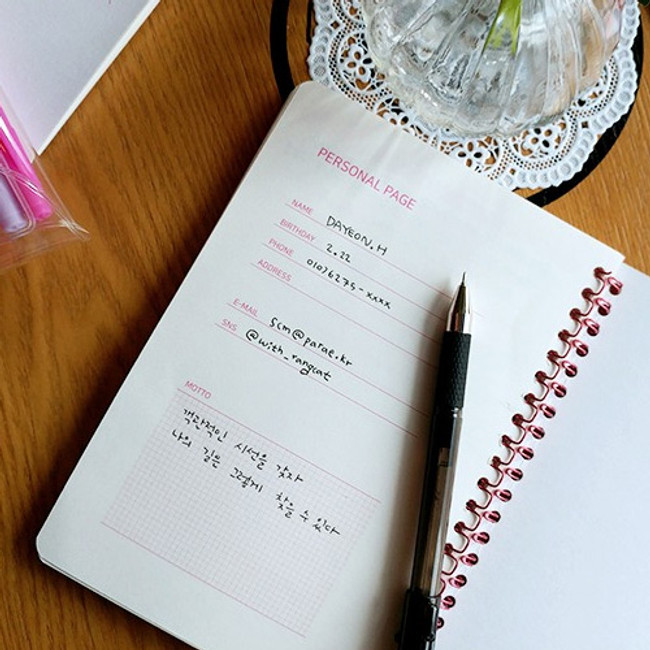 PERSONAL PAGE
NAME DAYEON.H
BIRTHDAY 2.22
PHONE 01076275-xxxx
ADDRESS
E-MAIL scm@parae.kr
SNS @with_rangcat
MOTTO
객관적인 시선을 갖자
나의 길은 그렇게 찾을 수 있다